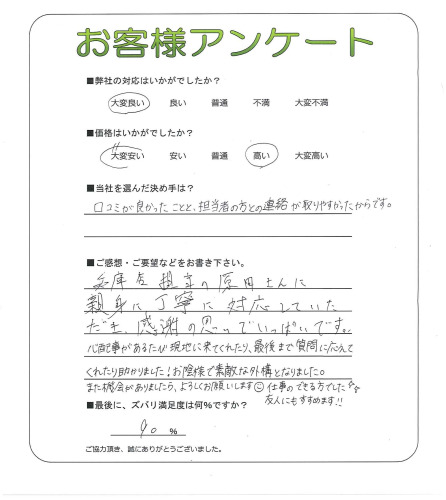 お客様アンケート
■弊社の対応はいかがでしたか？
大変良い 良い 普通 不満 大変不満
■価格はいかがでしたか？
大変安い 安い 普通 高い 大変高い
■当社を選んだ決め手は？
口コミが良かったことと、担当者の方との連絡が取りやすかったからです。
■ご感想・ご要望などをお書き下さい。
兵庫店担当の原田さんに
親身に丁寧に対応していた
だき、感謝の思いでいっぱいです。
心配事があるたび現地に来てくれたり、最後まで質問に応えて
くれたり助かりました！お陰様で素敵な外構となりました。
また機会がありましたら、よろしくお願いします 仕事のできる方でした
友人にもすすめます!!
■最後に、ズバリ満足度は何％ですか？
90 ％
ご協力頂き、誠にありがとうございました。